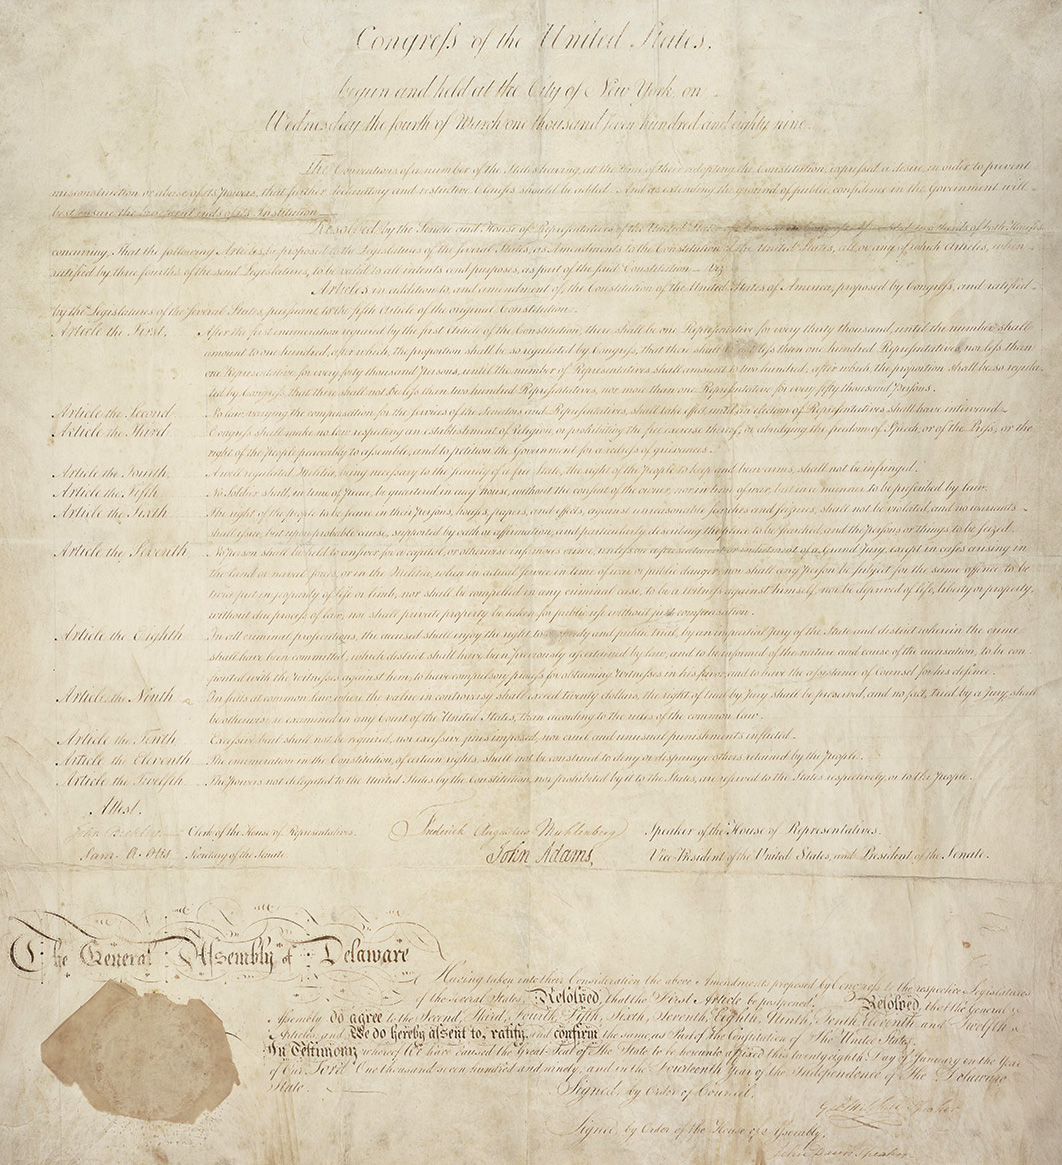 Congreſs of the United States,
begun and held at the City of New York, on
Wednesday the fourth of March one thousand seven hundred and eighty nine.
The Conventions of a number of the States having, at the time of their adopting the Constitution, expressed a desire, in order to prevent
misconstruction or abuse of its Powers, that further declaratory and restrictive Clauses should be added: And as extending the ground of public confidence in the Government will
best ensure the beneficent ends of its Institution
Resolved by the Senate and House of Representatives of the United States of America in Congress assembled, two thirds of both Houses
concurring, That the following Articles be proposed to the Legislatures of the several States, as Amendments to the Constitution of the United States, all or any of which Articles, when
ratified by three fourths of the said Legislatures, to be valid to all intents and purposes, as part of the said Constitution, Viz.
Articles in addition to, and amendment of, the Constitution of the United States of America, proposed by Congreſs, and ratified
by the Legislatures of the several States, pursuant to the fifth Article of the original Constitution.
Article the First. After the first enumeration required by the first Article of the Constitution, there shall be one Representative for every thirty thousand, until the number shall
amount to one hundred, after which, the proportion shall be so regulated by Congreſs, that there shall be not leſs than one hundred Representatives, nor leſs than
one Representative for every forty thousand Persons, until the number of Representatives shall amount to two hundred, after which, the proportion shall be so regula-
ted by Congreſs, that there shall not be leſs than two hundred Representatives, nor more than one Representative for every fifty thousand Persons.
Article the Second. No law varying the compensation for the services of the Senators and Representatives, shall take effect, until an election of Representatives shall have intervened.
Article the Third. Congreſs shall make no law respecting an establishment of Religion, or prohibiting the free exercise thereof, or abridging the freedom of Speech, or of the Preſs, or the
right of the People peaceably to assemble, and to petition the Government for a redreſs of grievances.
Article the Fourth. A well regulated Militia, being necessary to the security of a free State, the right of the People to keep and bear arms, shall not be infringed.
Article the Fifth. No Soldier shall, in time of Peace, be quartered in any house, without the consent of the owner, nor in time of war, but in a manner to be prescribed by law.
Article the Sixth. The right of the People to be secure in their Persons, houses, papers, and effects, against unreasonable searches and seizures, shall not be violated, and no warrants
shall issue, but upon probable cause, supported by oath or affirmation, and particularly describing the place to be searched, and the Persons or things to be seized.
Article the Seventh. No Person shall be held to answer for a capital, or otherwise infamous crime, unleſs on a presentment or indictment of a Grand Jury, except in cases arising in
the land or naval forces, or in the Militia, when in actual service in time of war or public danger; nor shall any Person be subject for the same offence to be
twice put in jeopardy of life or limb, nor shall be compelled in any criminal case, to be a witneſs against himself, nor be deprived of life, liberty or property,
without due proceſs of law; nor shall private property be taken for public use without just compensation.
Article the Eighth. In all criminal prosecutions, the accused shall enjoy the right to a speedy and public trial, by an impartial Jury of the State and district wherein the crime
shall have been committed, which district shall have been previously ascertained by law, and to be informed of the nature and cause of the accusation, to be con-
fronted with the Witneſses against him, to have compulsory proceſs for obtaining Witnesses in his favor, and to have the assistance of Counsel for his defence.
Article the Ninth. In suits at common law, where the value in controversy shall exceed twenty dollars, the right of trial by Jury shall be preserved, and no fact, tried by a Jury, shall
be otherwise re-examined in any Court of the United States, than according to the rules of the common law.
Article the Tenth. Excessive bail shall not be required, nor excessive fines imposed, nor cruel and unusual punishments inflicted.
Article the Eleventh. The enumeration in the Constitution, of certain rights, shall not be construed to deny or disparage others retained by the People.
Article the Twelfth. The Powers not delegated to the United States by the Constitution, nor prohibited by it to the States, are reserved to the States respectively, or to the People.
Attest.
John Beckley Clerk of the House of Representatives. Frederick Augustus Muhlenberg Speaker of the House of Representatives.
Sam. A. Otis Secretary of the Senate John Adams, Vice President of the United States, and President of the Senate.
The General Assembly of Delaware
Having taken into their Consideration the above Amendments proposed by Congreſs to the respective Legislatures
of the several States, Resolved, that the First Article be postponed; Resolved, that the General
Assembly do agree to the Second, Third, Fourth, Fifth, Sixth, Seventh, Eighth, Ninth, Tenth, Eleventh and Twelfth
Articles, and We do hereby assent to, ratify, and confirm the same, as Part of the Constitution of The United States.
In Testimony whereof We have caused the Great Seal of The State to be hereunto affixed this twenty eighth Day of January in the Year
of Our Lord One thousand seven hundred and ninety, and in the Fourteenth Year of the Independence of The Delaware
State.
Signed by Order of Council.
Geo Mitchell Speaker
Signed, by Order of the House of Assembly.
Jehu Davis Speaker